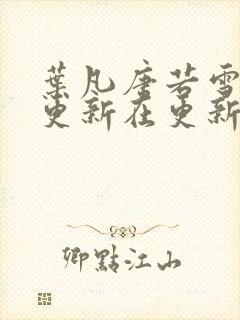 葉凡唐若雪
更新在更新
卿點江山